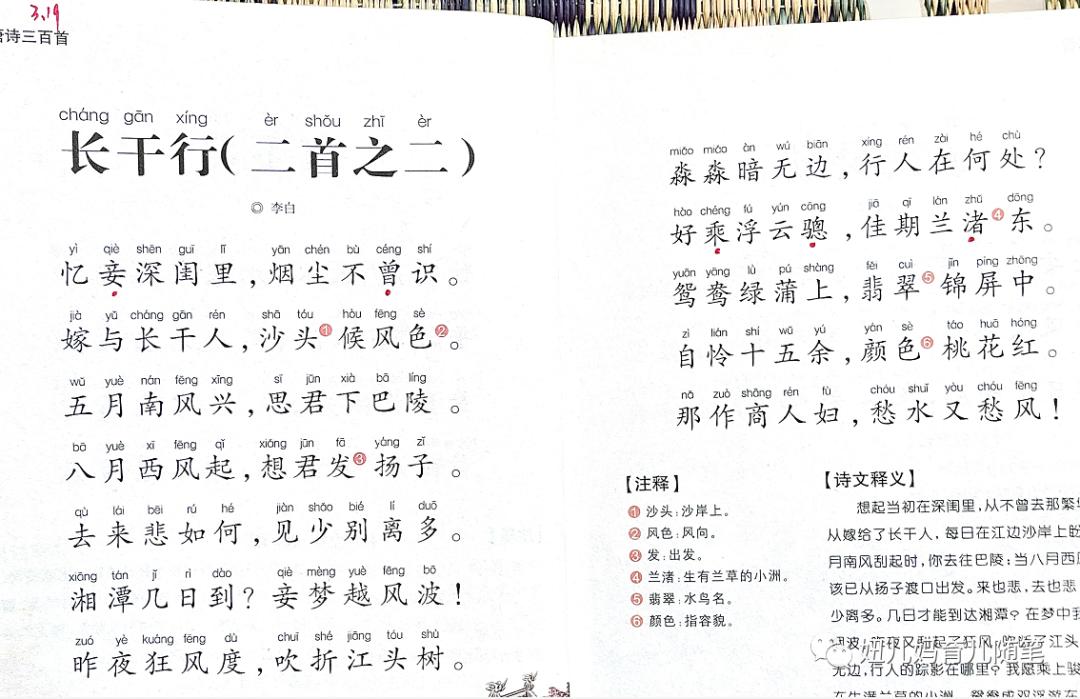 3.19
唐诗三百首
cháng gān xíng èr shǒu zhī èr
长干行(二首之二)
◎ 李白
yì qiè shēn guī lǐ yān chén bù céng shí
忆妾深闺里,烟尘不曾识。
jià yǔ cháng gān rén shā tóu hòu fēng sè
嫁与长干人,沙头①候风色②。
wǔ yuè nán fēng xīng sī jūn xià bā líng
五月南风兴,思君下巴陵。
bā yuè xī fēng qǐ xiǎng jūn fā yáng zǐ
八月西风起,想君发③扬子。
qù lái bēi rú hé jiàn shǎo bié lí duō
去来悲如何,见少别离多。
xiāng tán jǐ rì dào qiè mèng yuè fēng bō
湘潭几日到?妾梦越风波!
zuó yè kuáng fēng dù chuī shé jiāng tóu shù
昨夜狂风度,吹折江头树。
miǎo miǎo àn wú biān xíng rén zài hé chù
淼淼暗无边,行人在何处?
hǎo chéng fú yún cōng jiā qī lán zhǔ dōng
好乘浮云骢,佳期兰渚④东。
yuān yāng lǜ pú shàng fěi cuì jǐn píng zhōng
鸳鸯绿蒲上,翡翠⑤锦屏中。
zì lián shí wǔ yú yán sè táo huā hóng
自怜十五余,颜色⑥桃花红。
nǎ zuò shāng rén fù chóu shuǐ yòu chóu fēng
那作商人妇,愁水又愁风!
【注释】
①沙头:沙岸上。
②风色:风向。
③发:出发。
④兰渚:生有兰草的小洲。
⑤翡翠:水鸟名。
⑥颜色:指容貌。
【诗文释义】
想起当初在深闺里,从不曾去那繁
从嫁给了长干人,每日在江边沙岸上
月南风刮起时,你去往巴陵;当八月西
该已从扬子渡口出发。来也悲,去也悲
少离多。几日才能到达湘潭?在梦中我
风波!昨夜又刮起了狂风,吹断了江头
无边,行人的踪影在哪里?我愿乘上骏
在生满兰草的小洲
妞儿妈育儿随笔